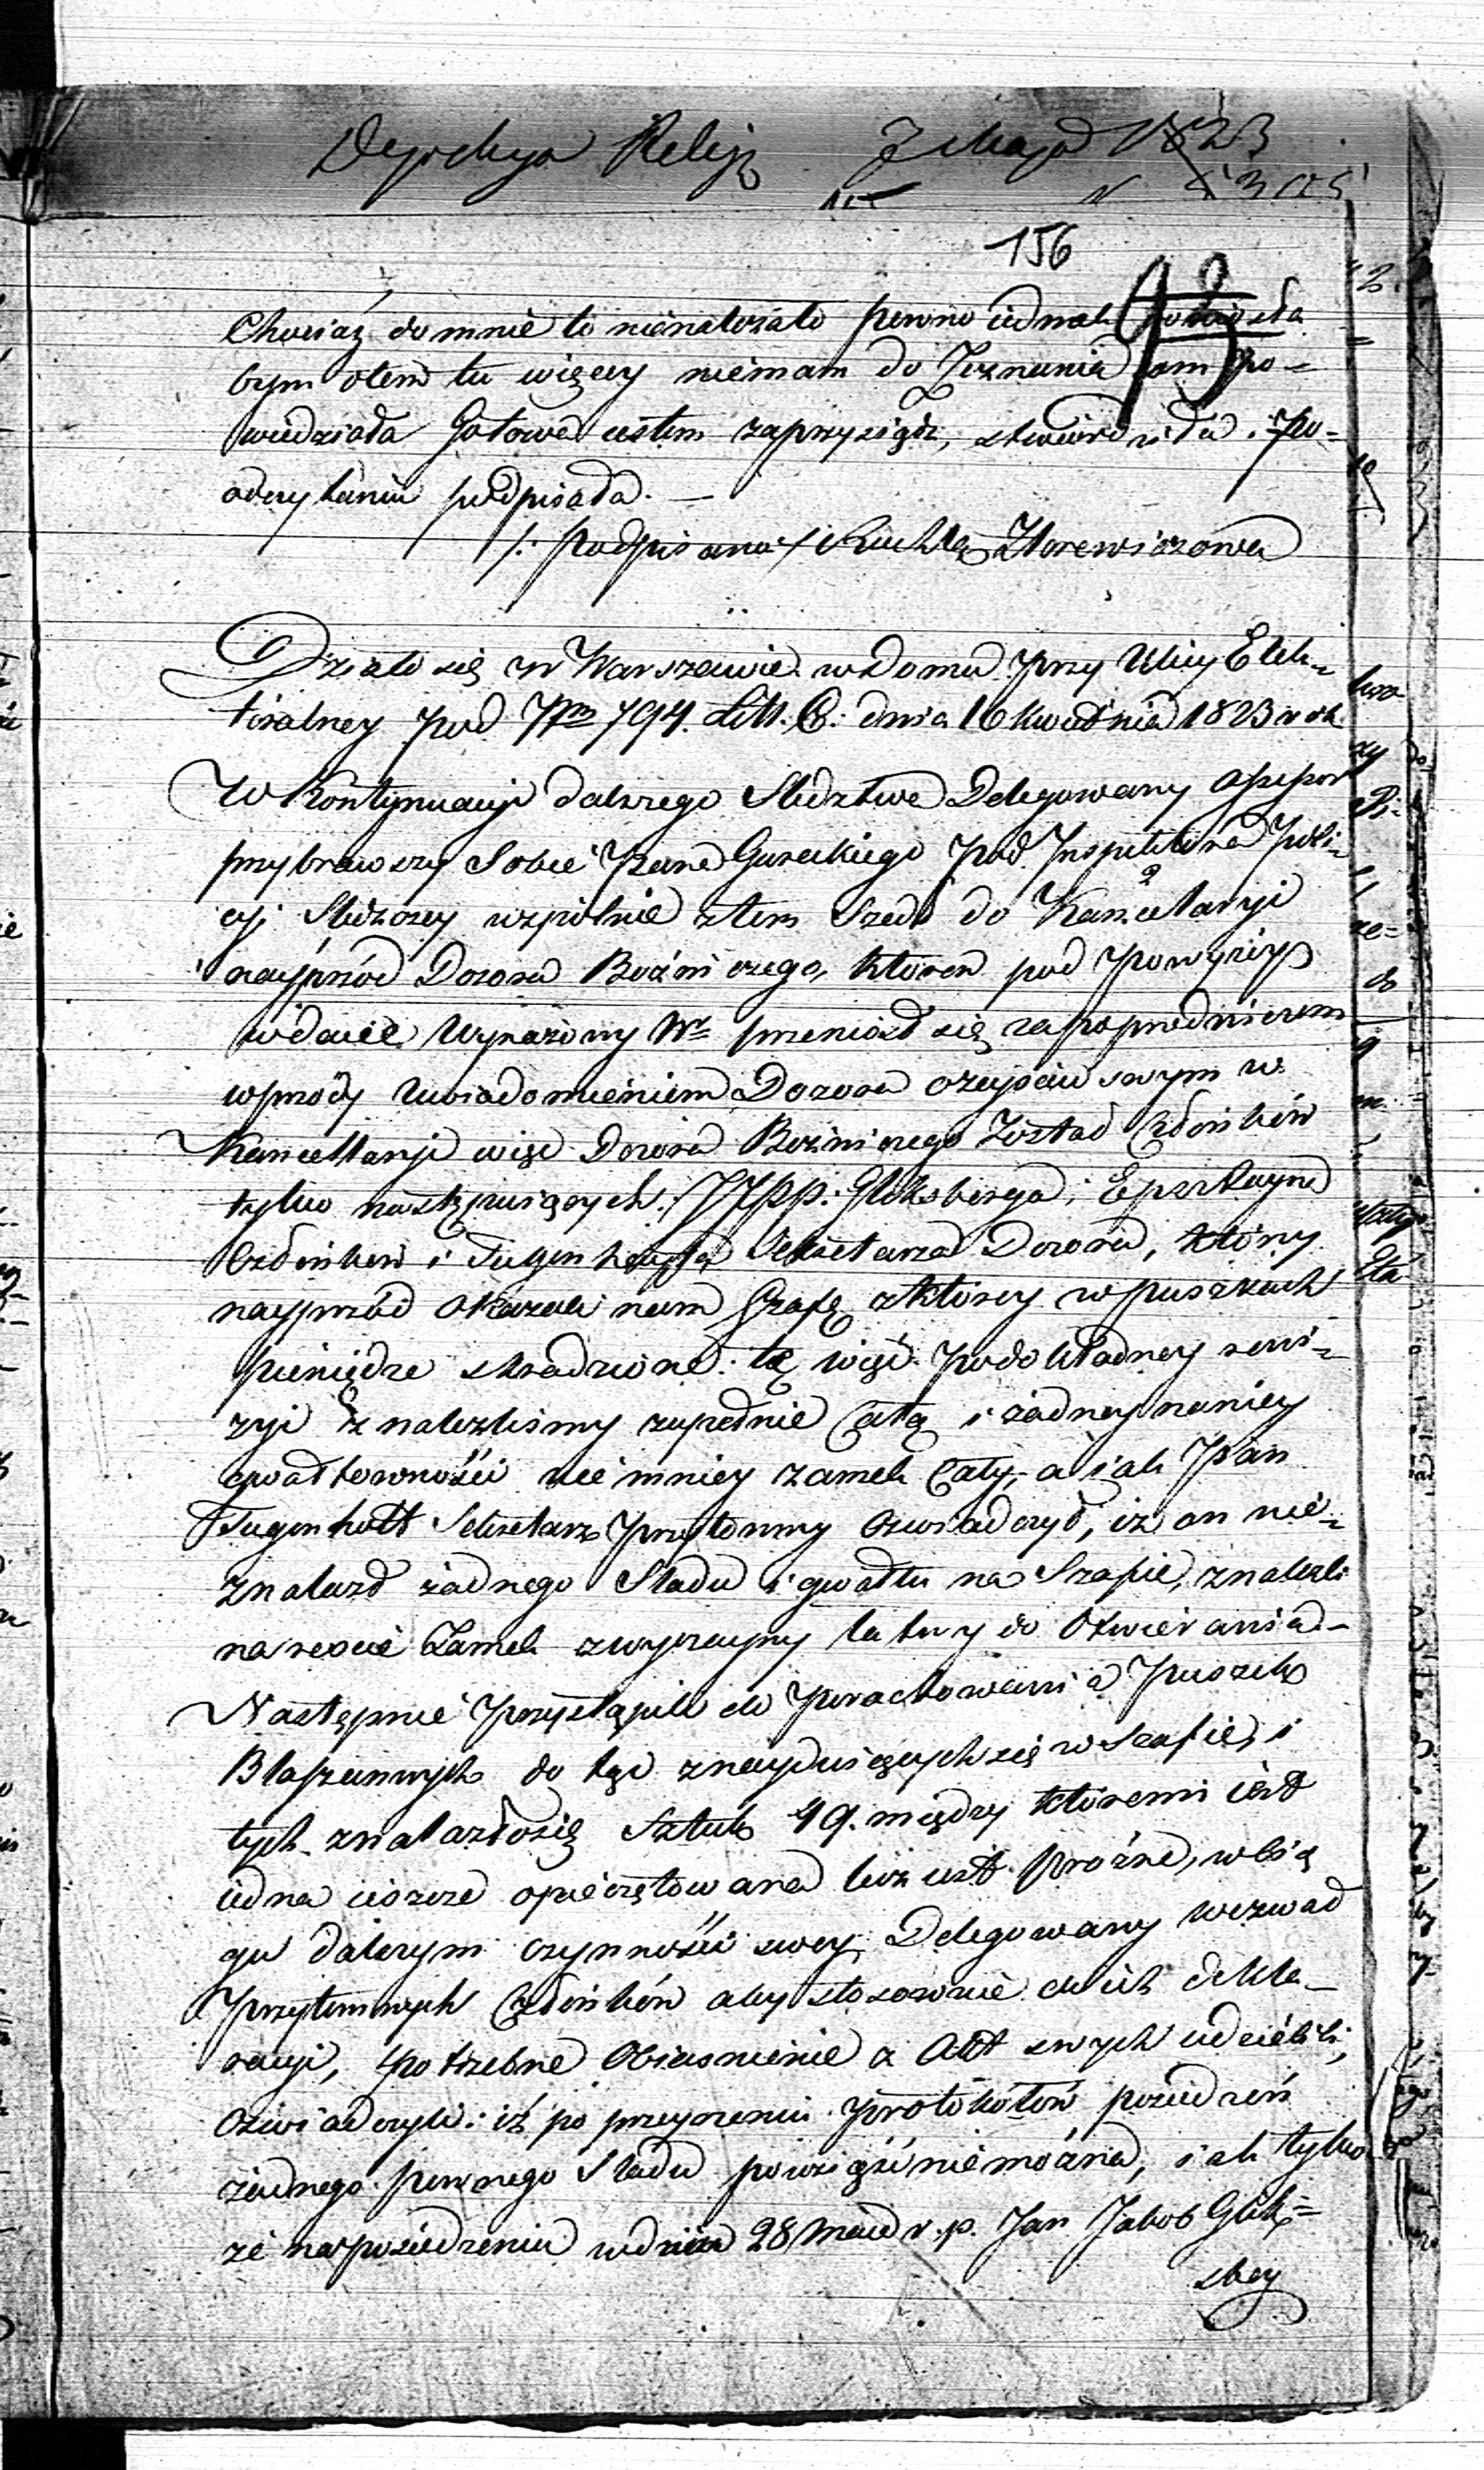 7 Maja 1823
156
93
Chociaż do mnie to nienależało pewno iednak
bym otem tu więcey niemam do Zeznania iam po-
wiedziała Gotowa iestem zaprzysiądz, stwierdziła i po=
odczytaniu podpisała. —
/: Podpisana :/ Ruchla
Działo się w Warszawie w domu przy Ulicy Elek-
toralney pod Nrm 794. Litt. C. dnia 16 Kwietnia 1823 rok
W Kontynuacyi dalszego Sledztwa Delegowany Assessor
przybrawszy Sobie Pana Gureckiego Pod Inspektora Poli-
cyi Sledczey wspólnie z tem Szedł do Kancelaryi
nayprzód Dozoru Bóżniczego, któren pod powyższ
wdacie wyrażony Nr przeniosł się za poprzedniczem
wprzódy uwiadomieniem Dozoru o zejściu swym w
Kancellaryi więc Dozoru Bożniczego Został Członków
tylko następuiących JJPP: Gliksberga i Epsztayna
Członków i Tugenholda Sekretarza Dozoru, który
nayprzód okazali nam Szafę z ktorey w puszkach
pieniądze skradzione. tę więc po dokładney rewi-
zyi znaleźliśmy zupełnie Całą i żadney naniey
gwałtowności nie mniey zamek Cały, a iak Pan
Tugenholtt Sekretarz przytomny oświadczył, iż on nie-
znalazł żadnego Sladu i gwałtu na Szafie, znaleźli
nareście Zamek zwyczayny łatwy do Otwierania —
Następnie przystąpili do porachowania Puszek
Blaszannych do tąd znayduiących się w szafie, i
tych znalazło się Sztuk 49. między któremi iest
iedna ieszcze opieczętowana lecz iest próżna, w cią
gu dalszym czynności swey, Delegowany wezwał
przytomnych Członków aby stosownie do ich dekla-
racyi, potrzebne obiaśnienie z Akt swych udzielili,
oświadczyli: iż po przeyrzeniu protokółów posiedzeń
żadnego pewnego Sladu powziąść nie można, iak tylko
że na posiedzeniu w dniu 28 Maia r. p. Jan Jakob Gliks=
berg